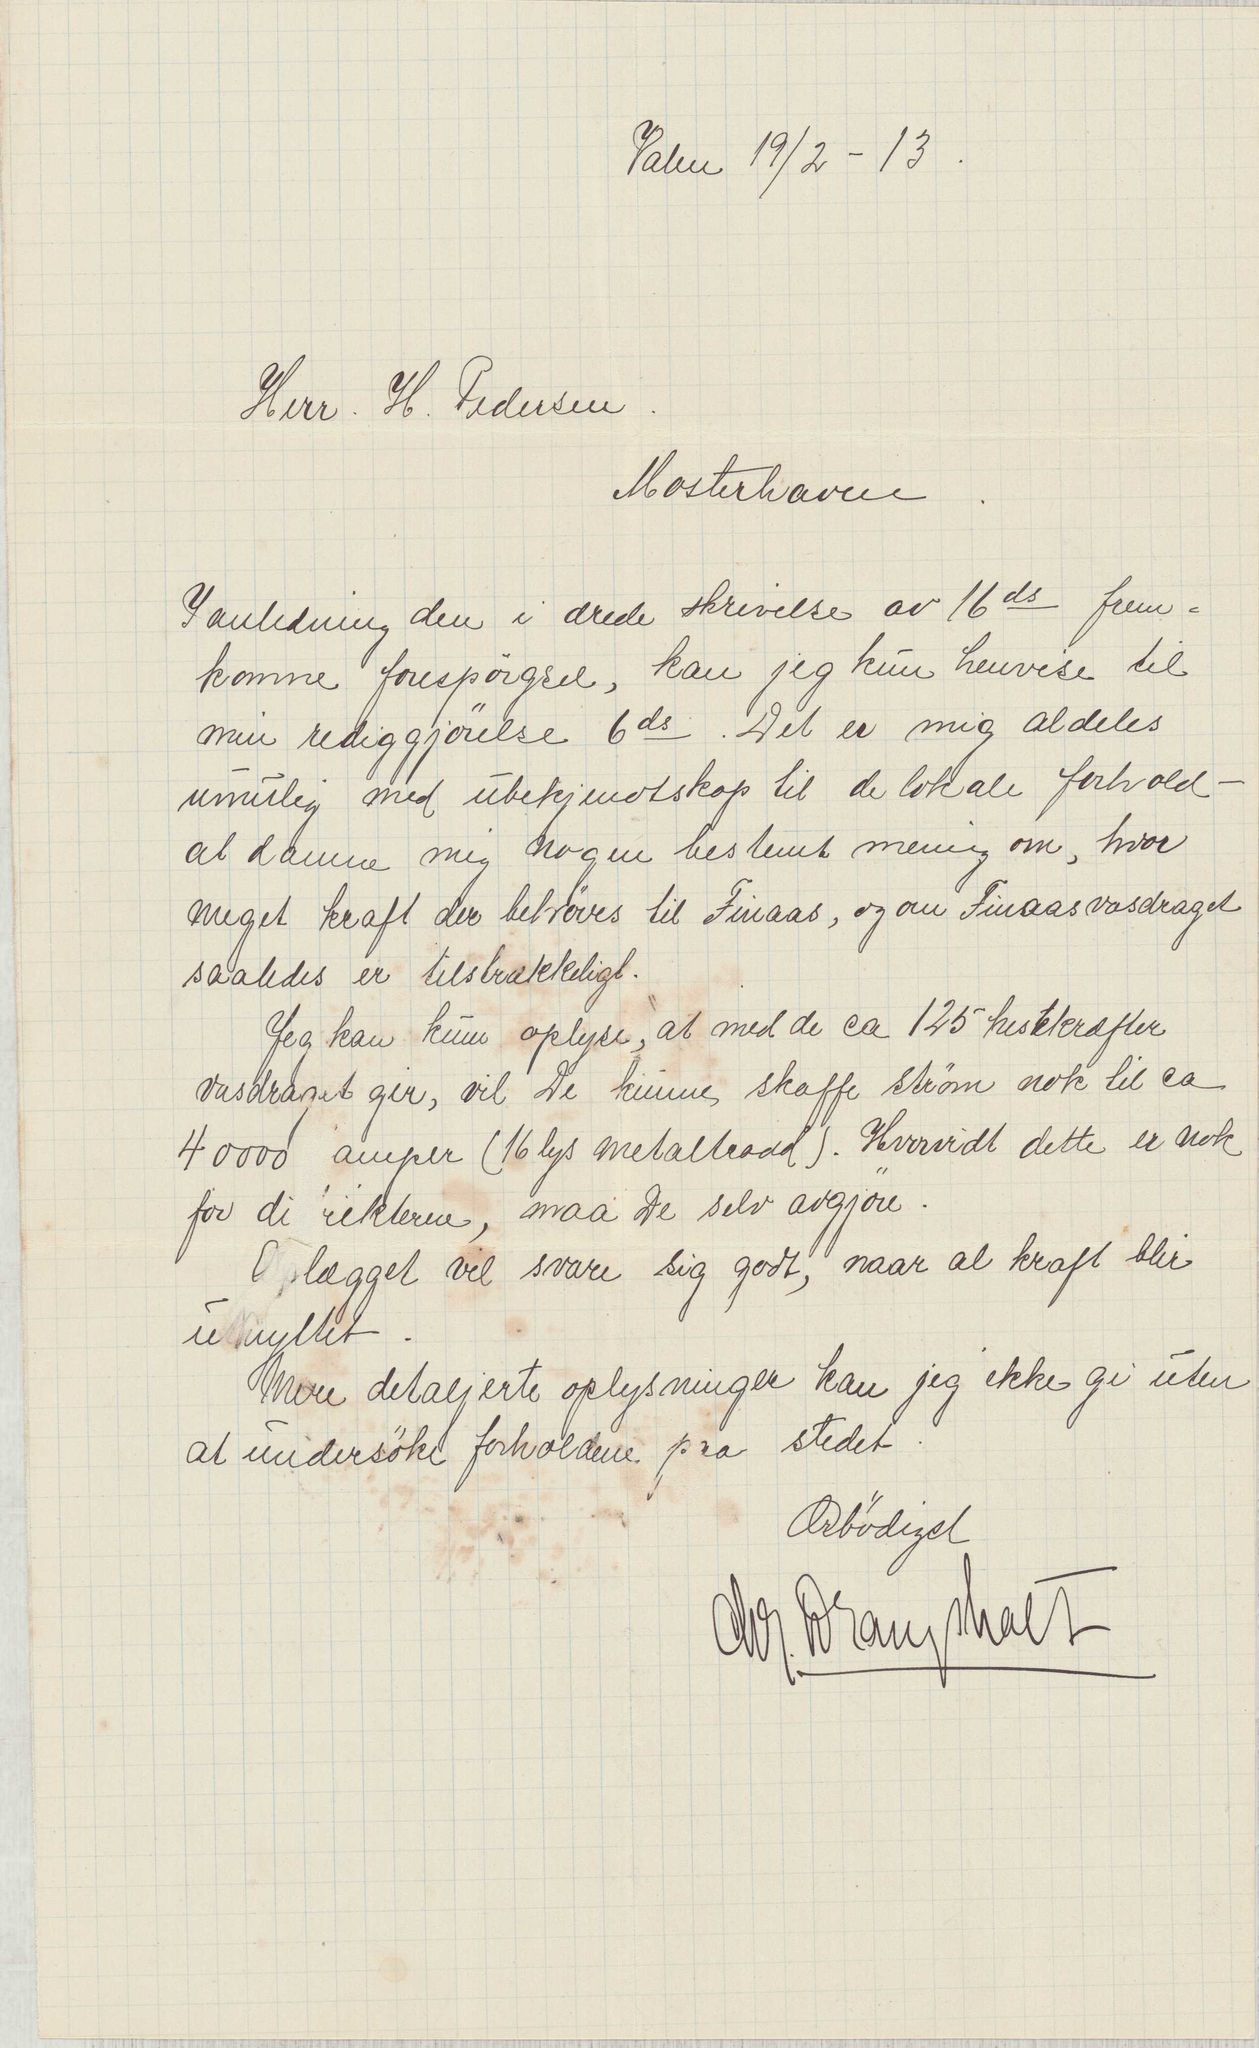 Valen 19/2 - 13.
Herr. H. Pedersen.
Mosterhavn.
I anledning den i ærede skrivelse av 16 ds frem-
komne forespörgsel, kan jeg kun henvise til
min rediggjörelse 6 ds. Det er mig aldeles
umulig med ubekjendtskap til de lokale forhold -
at danne mig nogen bestemt mening om, hvor
meget kraft der behöves til Finaas, og om Finaasvasdraget
saaledes er tilstrækkeligt.
Jeg kan kun oplyse, at med de ca 125 hestekræfter
vasdraget gir, vil De kunne skaffe ström nok til ca
40000 amper (16 lys metaltraad). Hvorvidt dette er nok
for distrikterne, maa De selv avgjöre.
Oplægget vil svare sig godt, naar al kraft blir
utnyttet.
Mere detaljerte oplysninger kan jeg ikke gi uten
at undersöke forholdene paa stedet.
Ærbödigst
Chr. Drangsholt